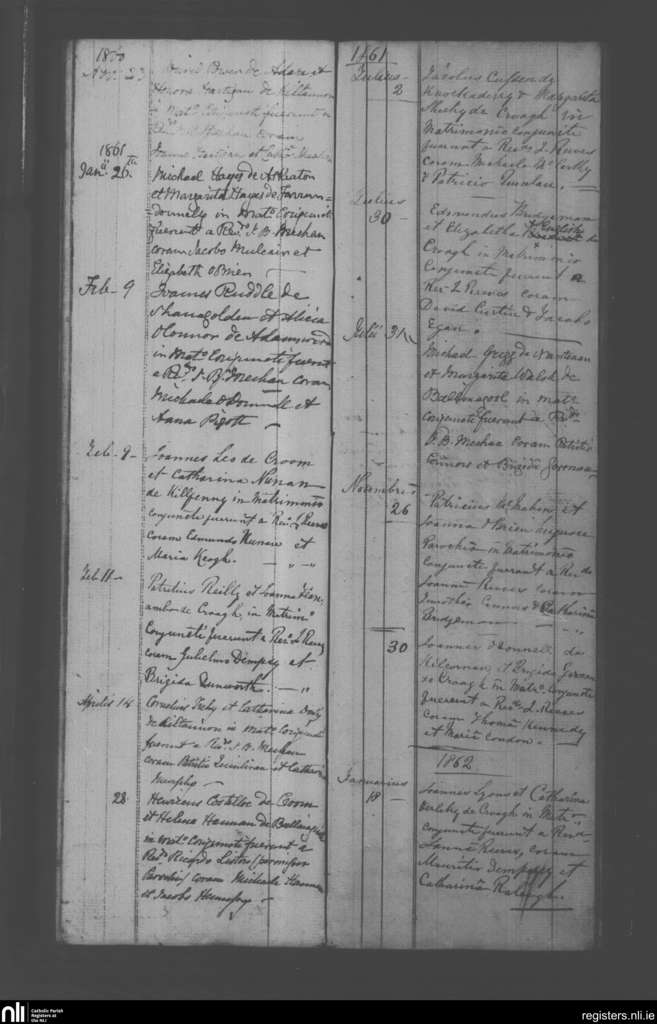 1860
Nov. 23
David Bwen de Adare et
Honora Hartigan de Kiltannon
in Matr. Conjuncti fuerunt a
Meehan coram
James Hartigan et
1861
Jan. 26th
Michael Hayes de Askeaton
et Margarita Hayes de Farran=
=donnelly in Mato. Conjuncti
fuerunt a Revd. J. B. Meehan
coram Jacobo Mulcair et
Elizabeth OBrien
Feb - 9
Joannes Ruddle de
Shanagolden et Alicia
OConnor de Adamswood
in Mato. Conjuncti fuerunt
a Revd. J. B. Meehan coram
Michaele ODonnell et
Anna Pigott
Feb - 9 -
Joannes Leo de Croom
et Catharina Nunan
de Kilfenny in Matrimonio
Conjuncti fuerunt a Revd. L Reeves
coram Edmundo Nunan et
Maria Keogh.
Feb 11 -
Patritius Reilly et Joanna
de Croagh, in Matrim.
Conjuncti fuerunt a Revd. L Reeves
coram Gulielmo Dempsy et
Brigida Dunworth.
Aprilis 14
Cornelius et Catharina Daly
de Kiltannon in Mato Conjuncti
fuerunt a Revd. J. B. Meehan
coram Patritio Quinlivan et Catharina
Murphy
28
Henricus Costelloe de Croom
et Helena Hannan de
in Mato. Conjuncti fuerunt a
Revd. Ricardo Liston (permissu
Parochi) coram Michaele Hannan
et Jacobo Humphry
1861
Julius
2
Jacobus Cussen de
Knockaderry & Margarita
de Croagh in
Matrimonio conjuncti
fuerunt a Revd. L Reeves
coram Michaele McCarthy
& Patricio Quinlan.
Julius
30 -
Edmundus Bridgeman
et Elizabetha English de
Croagh in Matrimonio
Conjuncti fuerunt a
Rev L Reeves coram
David Curtin & Jacobo
Egan.
Julii 31
Michael Grigg de Nantinan
et Margarita Walsh de
in Matr
Conjuncti fuerunt a Revd.
J. B. Meehan coram Patritio
Connors et Brigida
Novembris
26
Patricius McMahon et
Joanna OBrien hujusce
Parochiæ in Matrimonio
Conjuncti fuerunt a Rev do
Joanne Reeves coram
Timotheo Connors & Catharina
Bridgeman
30
Joannes OConnell de
Kilcornan et Brigida
de Croagh in Matro. Conjuncti
fuerunt a Revdo. L. Reeves
coram Thoma Kennedy
et Maria Condon.
1862
Januarius
18 -
Joannes Lyons et Catharina
de Croagh in Matr
conjuncti fuerunt a Revd
Joanne Reeves, coram
Mauritio Dempsey et
Catharina Raleigh.
nli
Catholic Parish
Registers at
the NLI
registers.nli.ie